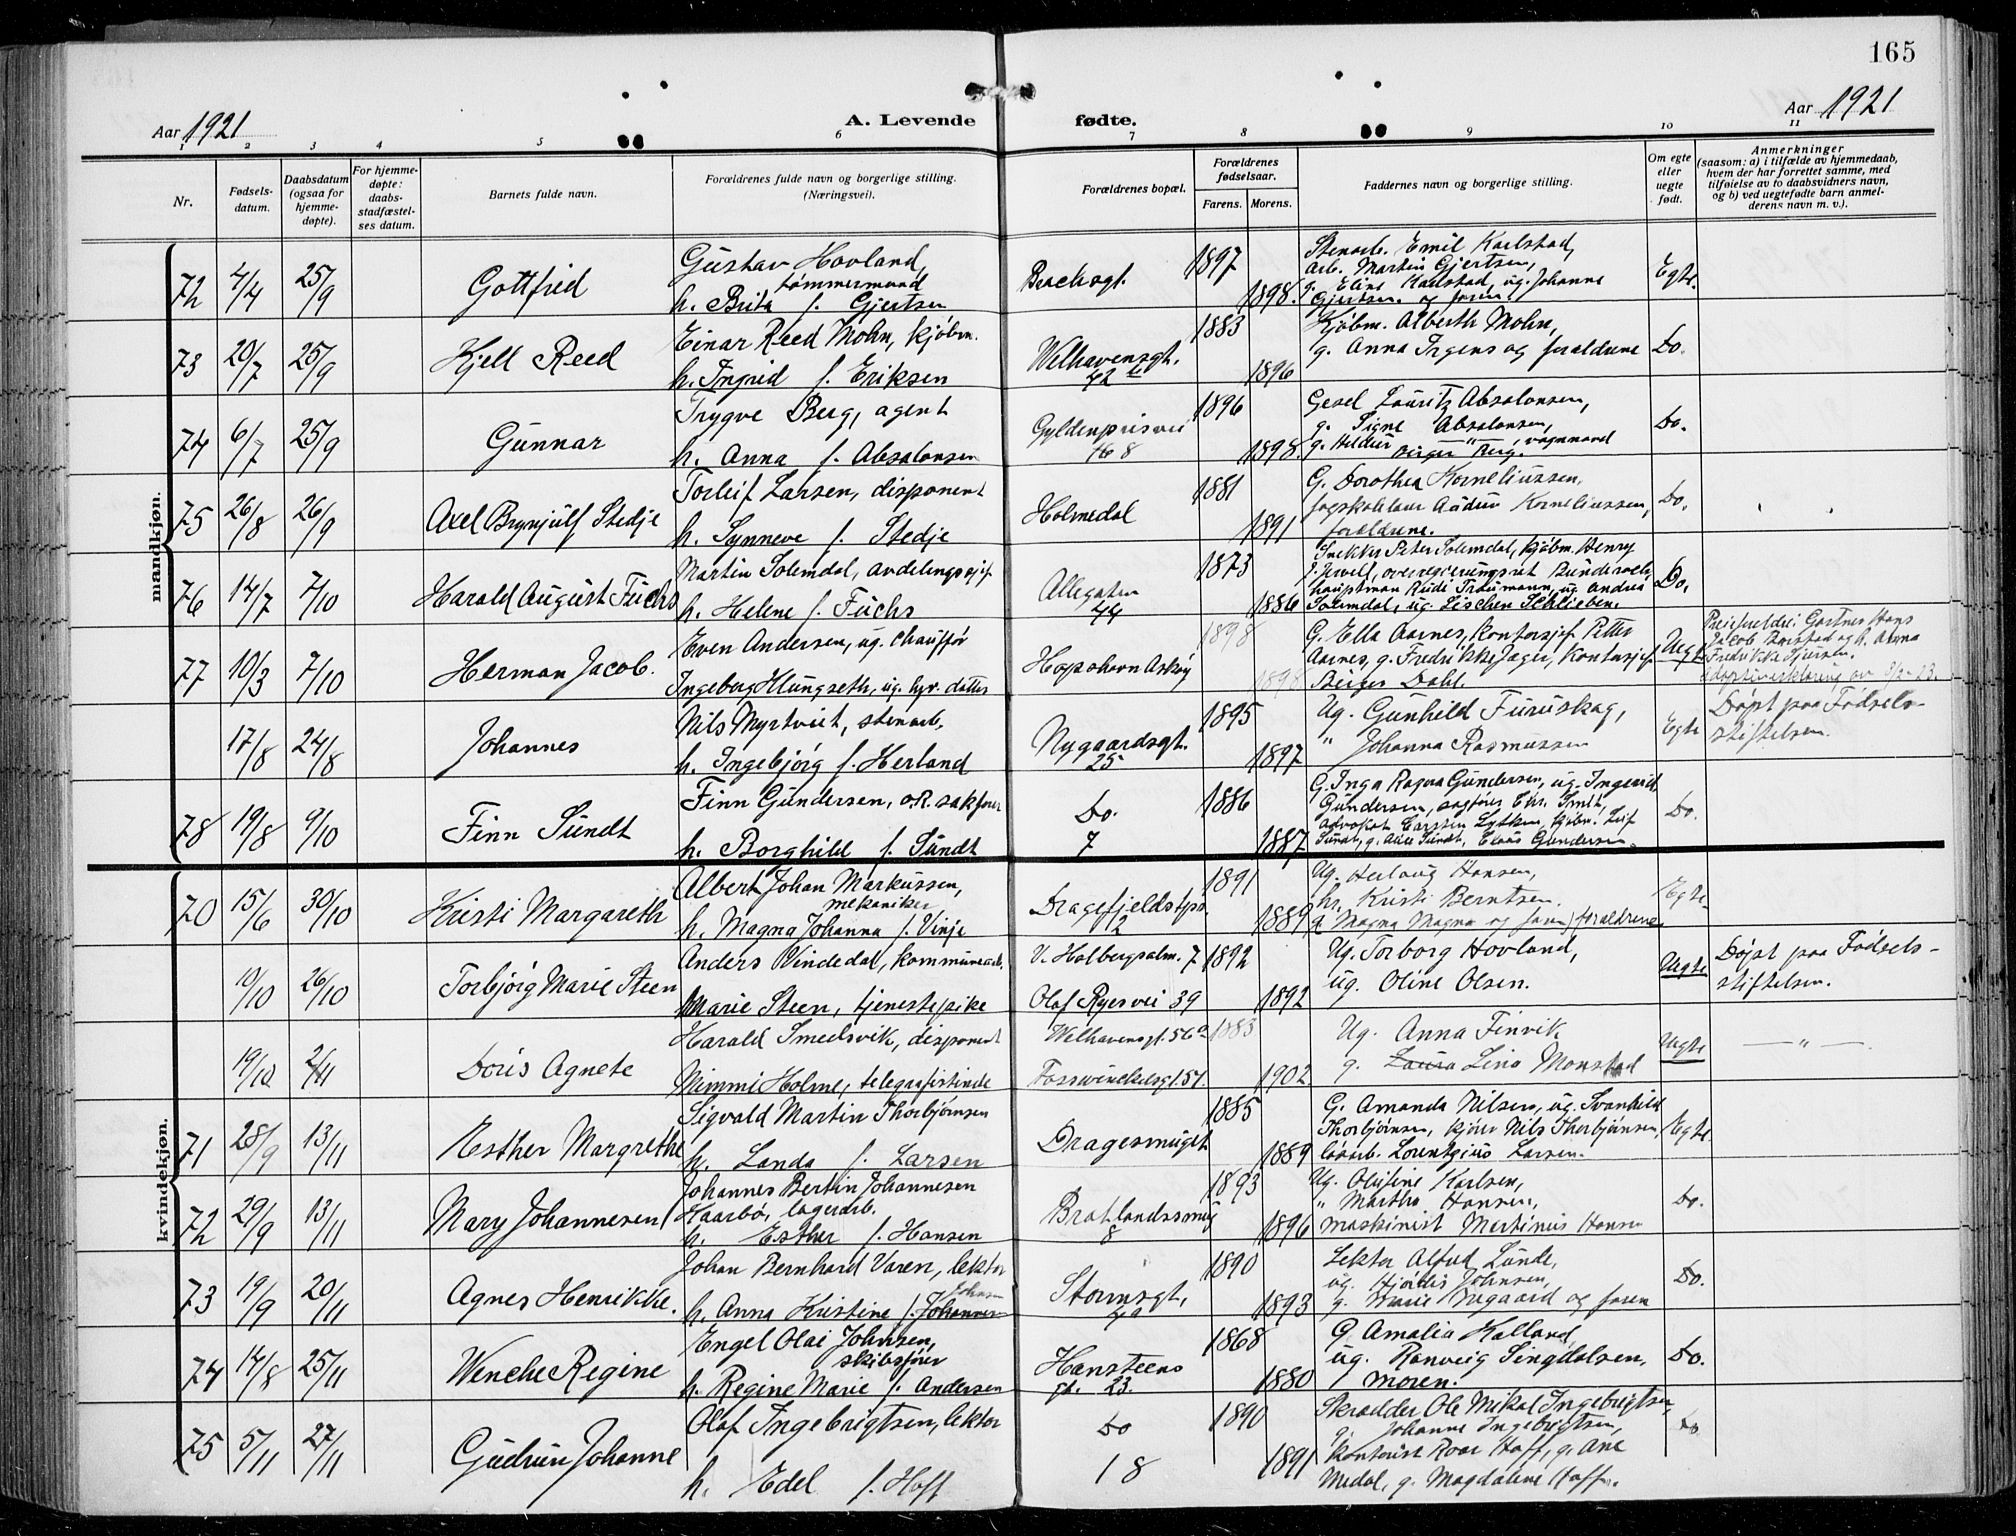 165
Aar 1921
A. Levende fødte.
Aar 1921
1 2 3 4 5 6 7 8 9 10 11
Nr.
Fødsels-
datum.
Daabsdatum
(ogsaa for
hjemme-
døpte).
For hjemme-
døpte:
daabs-
stadfæstel-
ses datum.
Barnets fulde navn.
Forældrenes fulde navn og borgerlige stilling.
(Næringsvei).
Forældrenes bopæl.
Forældrenes
fødselsaar.
Farens. Morens.
Faddernes navn og borgerlige stilling.
Om egte
eller
uegte
født.
Anmerkninger
(saasom: a) i tilfælde av hjemmedaab,
hvem der har forrettet samme, med
tilføielse av to daabsvidners navn,
og b) ved uegtefødte barn anmel-
derens navn m. v.).
mandkjøn.
72 4/4 25/9 Gottfred
Gustav Hovland,
tømmermand
h. Brita f. Gjertsen
1897
1898.
Stenarb. Emil Karlstad,
arb. Martin Gjertsen,
g. Eline Karlstad, ug. Johanne
Gjertsen og faren
Egte.
73 20/7 25/9 Kjell Reed
Einar Reed Mohn, kjøbm.
h. Ingrid f. Eriksen
Welhavensgt.
42
1883
1896
Kjøbm. Alberth Mohn,
g. Anna Irgens og forældrene
Do.
74 6/7 25/9 Gunnar
Trygve Berg, agent
h. Anna f. Absalonsen
Gyldenprisvei
16 8
1896
1898.
Gesel Lauritz Absalonsen,
g. Signe Absalonsen,
Do.
75 26/8 26/9 Axel Brynjulf Stedje
Torleif Larsen, disponent
h. Synneve f. Stedje
Holmedal
1881
1891
G. Dorothea Korneliussen,
fagskolelær Audun Korneliussen,
forældrene.
Do.
76 14/7 7/10 Harald August Fuchs
Martin Solemdal, avdelingssjef
h. Helene f. Fuchs
Allegaten
44
1873
1886
Snekker Peter Solemdal, kjøbm. Henry
hauptman Rudi Traumann, ug. Andrea
Solemdal, ug. Lischen Schlieben.
Do.
77 10/3 7/10 Herman Jacob.
Even Andersen, ug. chauffør
Ingeborg Hlungseth, ug. hyr. datter
Hopshavn Askøy
1898
1898
G. Ella Aarnes, kontorsjef Petter
Aarnes, g. Fredrikke Jager, kontorsjef
Birger Dahl.
Uegte
17/8 24/8 Johannes
Nils Myrtveit, stenarb.
h. Ingebjørg f. Herland
Nygaardsgt.
25
1895
1897
Ug. Gunhild Furuskag,
" Johanna Rasmussen
Egte
Døpt paa Fødsels-
stiftelsen.
78 19/8 9/10 Finn Sundt
Finn Gundersen, o.R. sakfører
h. Borghild f. Sundt
Do.
7
1886
1887
G. Inga Ragna Gundersen, ug. Ingearid
Gundersen, sagfører Chr. Smith,
Advokat Carsten Lytken, kjøbm. Leif
Sundt, g. Alice Sundt, Claus Gundersen.
Do.
kvindekjøn.
70 15/6 30/10 Kristi Margareth
Albert Johan Markussen,
mekaniker
h. Magna Johanna f. Vinje
Dragefjeldstps.
12
1891
1889
Ug. Herlaug Hansen,
hr. Kristi Berntsen.
Egte
10/10 26/10 Torbjørg Marie Steen
Anders Vindedal, kommunearb.
Marie Steen, tjenestepike
V. Holbergsalm. 7
Olaf Ryesvei 39
1892
1892
Ug. Torborg Hovland,
ug. Oline Olsen.
Uegte
Døpt paa Fødsels-
stiftelsen.
19/10 2/11 Doris Agnete
Harald Smedsvik, disponent
Mimmi Holme, telegrafistinde
Welhavensgt. 56
Fosswinckelsgt. 51.
1883
1902
Ug. Anna Finvik
g. Laura Lina Monstad
Uegte
— " —.
71 28/9 13/11 Esther Margrethe
Sigvald Martin Thorbjørnsen
h. Landa f. Larsen
Dragesmuget
1885
1889
G. Amanda Nilsen, ug. Svanhild
Thorbjørnsen, kjører Nils Thorbjørnsen,
løsarb. Lorentzius Larsen.
Egte.
72 29/9 13/11 Mary Johannesen
Johannes Bertin Johannesen
Haarbø, lagerarb.
h. Esther f. Hansen
Bratlandssmug
8
1893
1896
Ug. Olufine Karlsen,
" Martha Hansen,
maskinist Martinius Hansen
Do.
73 19/9 20/11 Agnes Henrikke.
Johan Bernhard Varen, lektor
Johnsen
h. Anna Kristine f. Johannesen
Stormsgt.
1890
1893
Lektor Alfred Lunde,
ug. Hjørdis Johnsen,
Do.
74 14/8 25/11 Wenche Regine
Engel Olai Johnsen,
skibsfører
h. Regine Marie f. Andersen
Hansteens
gt. 23.
1868
1880
G. Amalia Kalland,
ug. Ranveig Singdalsen,
moren.
Do.
75 5/11 27/11 Gudrun Johanne
Olaf Ingebrigtsen, lektor
h. Edel f. Hoff
Do
18
1890
1891
Skrædder Ole Mikal Ingebrigtsen,
g. Johanne Ingebrigtsen,
kontorist Roar Hoff, g. Ane
Medal, g. Magdalene Hoff.
Do